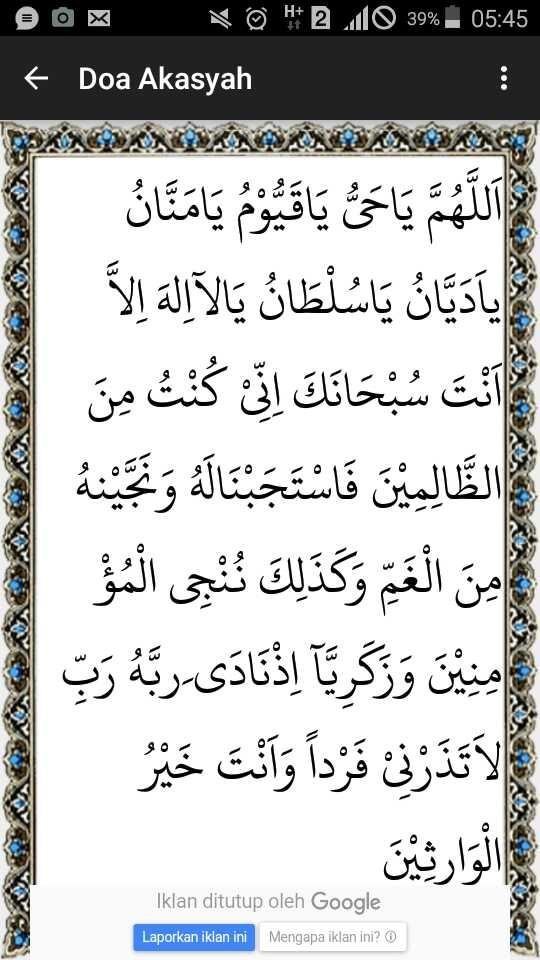 H+
2
39%
05:45
Doa Akasyah
اَللَّهُمَّ يَاحَىُّ يَاقَيُّوْمُ يَامَنَّانُ
ياَدَيَّانُ يَاسُلْطَانُ يَالاۤاِلهَ اِلاَّ
اَنْتَ سُبْحَانَكَ اِنِّىْ كُنْتُ مِنَ
الظَّالِمِيْنَ فَاسْتَجَبْنَالَهُ وَنَجَّيْنهُ
مِنَ الْغَمِّ وَكَذَلِكَ نُنْجِى الْمُؤْ
مِنِيْنَ وَزَكَرِيَّآ اِذْنَادَى ِربَّهُ رَبِّ
لاَتَذَرْنِىْ فَرْداً وَاَنْتَ خَيْرُ
الْوَارِثِيْنَ
Iklan ditutup oleh Google
Laporkan iklan ini Mengapa iklan ini?